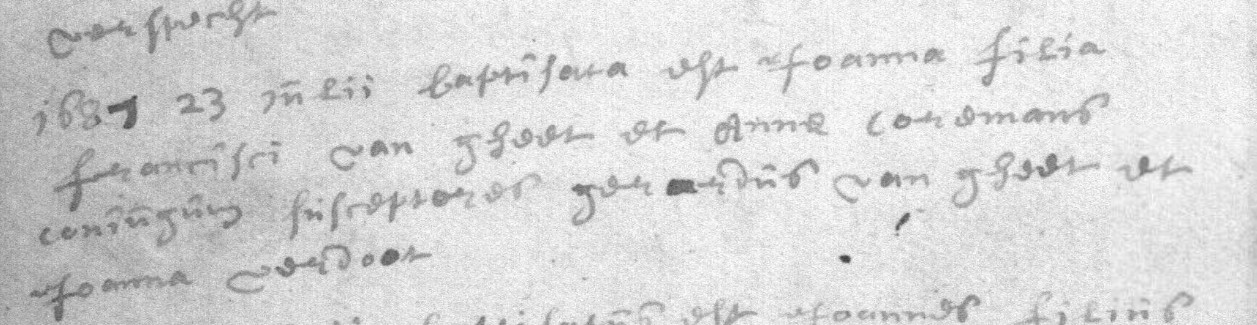 verspecht
1687 23 julii baptisata est Joanna filia
francisci van gheet et Anne coremans
coniugum susceptores gerardus van gheet et
Joanna verdoot
est Joannes filius